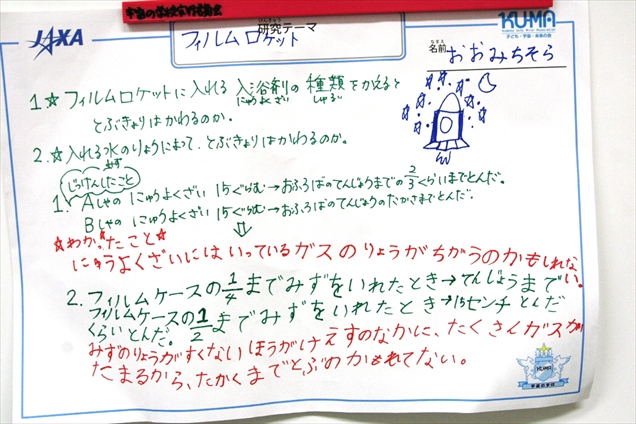 宇宙の学校
JAXA
けんきゅう
研究テーマ
フィルムロケット
KUMA
子ども・宇宙・未来の会
なまえ
名前 おおみちそら
1☆フィルムロケットに入れる入浴剤の種類をかえると
にゅうよくざい しゅるい
とぶきょりはかわるのか。
2.☆入れる水のりょうによって、とぶきょりはかわるのか。
みず
じっけんしたこと
1. Aしゃの にゅうよくざい 15ぐらむ→おふろばのてんじょうまでの2/3くらいまでとんだ。
Bしゃの にゅうよくざい 15ぐらむ→おふろばのてんじょうのたかさまでとんだ。
☆わかったこと☆
にゅうよくざいにはいっているガスのりょうがちがうのかもしれない。
2. フィルムケースの1/4までみずをいれたとき→てんじょうまで
フィルムケースの1/2までみずをいれたとき→15センチとんだ
くらいとんだ。
みずのりょうがすくないほうがけえすのなかに、たくさんガスが
たまるから、たかくまでとぶのかもれてない。
KUMA
宇宙の学校